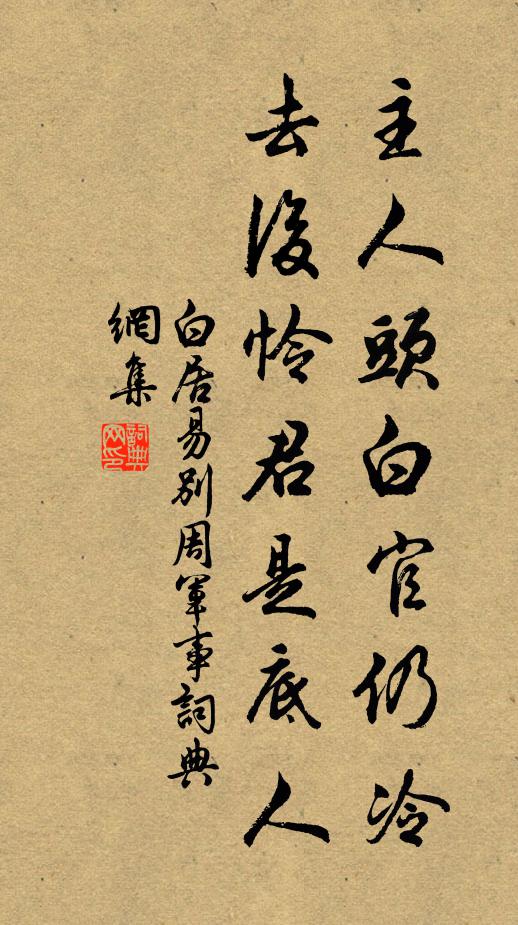 主人頭白官仍冷
去後怜君是底人
白居易別周軍事詞典
網集
詞典
网印